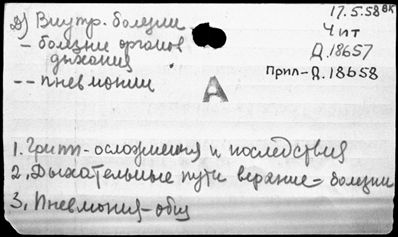 Д) Внутр. болезни
- болезни органов
дыхания
-- пневмонии
17.5.58 ВК
Чит
Д.18657
Прил-Д.18658
А
1. Грипп-осложнения и последствия
2. Дыхательные пути верхние-болезни
3. Пневмония-общ